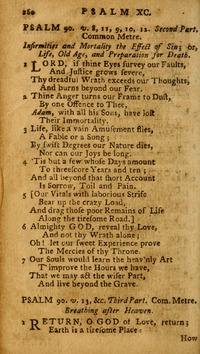 260 PSALM XC.
PSALM 90. v. 8, 11, 9, 10, 12. Second Part.
Common Metre.
Infirmities and Mortality the Effect of Sin; or,
Life, Old Age, and Preparation for Death.
1 LORD, if thine Eyes survey our Faults,
And Justice grows severe,
Thy dreadful Wrath exceeds our Thoughts,
And burns beyond our Fear.
2 Thine Anger turns our Frame to Dust,
By one Offence to Thee,
Adam, with all his Sons, have lost
Their Immortality.
3 Life, like a vain Amusement flies,
A Fable or a Song;
By swift Degrees our Nature dies,
Nor can our Joys be long.
4 'Tis but a few whose Days amount
To threescore Years and ten;
And all beyond that short Account
Is Sorrow, Toil and Pain.
[Our Vitals with laborious Strife
Bear up the crazy Load,
And drag those poor Remains of Life
Along the tiresome Road.]
6 Almighty GOD, reveal thy Love,
And not thy Wrath alone;
Oh! let our sweet Experience prove
The Mercies of thy Throne.
7 Our Souls would learn the heav'nly Art
T' improve the Hours we have,
That we may act the wiser Part,
And live beyond the Grave.
PSALM 90. v. 13, &c. Third Part. Com. Metre.
Breathing after Heaven.
1 RETURN, O GOD of Love, return;
Earth is a tiresome Place:
How